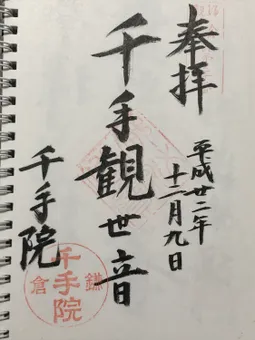 奉拝
平成廿二年
十二月九日
千手観世音
千手院
鎌倉
千手院